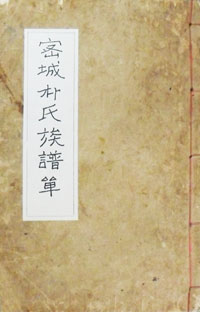 密城朴氏族譜單